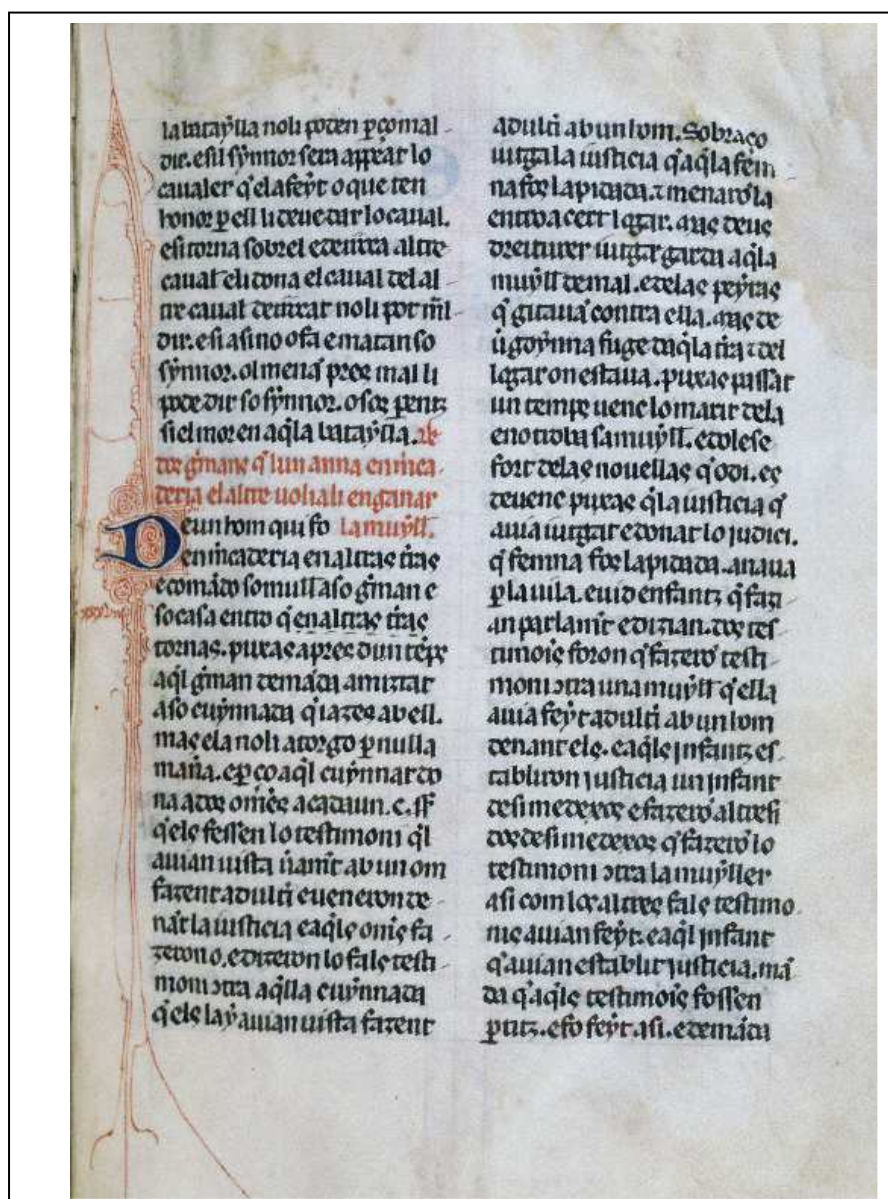 la bataẏlla noli poden ꝑço mal
dir. esil sẏnnor sera appear lo
caualer q̄ el a feẏt o que ten
honor ꝑ ell li deue dar lo caual.
esi torna sobrel e deurra altre
caual eli dona el caual del al
tre caual derrear noli pot mal
dir. esi asi no o fa e matan so
sẏnnor. ol mena pres mal li
pode dir so sẏnnor. o sos parentz
si el mor en aq̄la bataẏlla. de
dos g̃mans q̄ lun anna en m̃ca
deria el altre uolia li enganar
la muẏll.
Deun hom qui fo
en m̃caderia en altras t̃ras
e comãdo so mull a so g̃man e
so casa entro q̄ en altras t̃ras
tornas. puxas apres dun tẽps
aq̄l g̃man demãda amiztat
a so cuẏnnada q̄ iazes ab ell.
mas ela noli atorgo ꝑ nulla
mañа. e ꝑço aq̄l cuẏnnat do
na a dos om̃es a cada un .c. ss̄
q̄ els fessen lo testimoni q̄l
auian uista ũamt̃ ab un om
fazent adult̃i e ueneron de
nãt la iusticia e aq̄ls om̃s fa
zeron o. e dizeron lo fals testi
moni ɔtra aq̄lla cuẏnnada
q̄ els laẏ auian uista fazent
adult̃i ab un hom. Sobraço
iutga la iusticia q̄ aq̄la fem
na fos lapidada. ⁊ menarõ la
entro a cert logar. mas deus
dreiturer iutgar garda aq̄la
muẏll de mal. e de las peẏras
q̄ gitauã contra ella. mas de
ũgoẏnna fuge daq̄la t̃ra ⁊ del
logar on estaua. puxas passat
un temps uenc lo marit dela
e no troba sa muẏll. e doles e
fort de las nouellas q̄ odi. es
deuenc puxas q̄ la iusticia q̄
auia iutgat e donat lo judici.
q̄ femna fos lapidada. anaua
ꝑ la uila. e uio enfantz q̄ fazi
an parlamt̃ e dizian. dos tes
timoĩs foron q̄ fazerõ testi
moni ɔtra una muẏll q̄ ella
auia feẏt adult̃i ab un hom
denant els. e aq̄ls jnfantz es
tabliron justicia un infant
de si medexos e fazerõ altresi
dos de si medexos q̄ fazerõ lo
testimoni ɔtra la muẏller
asi com los altres fals testimo
nis auian feẏt. e aq̄l jnfant
q̄ auian establit justicia. mã
da q̄ aq̄ls testimoĩs fossen
ꝑtitz. e fo feẏt asi. e demãda